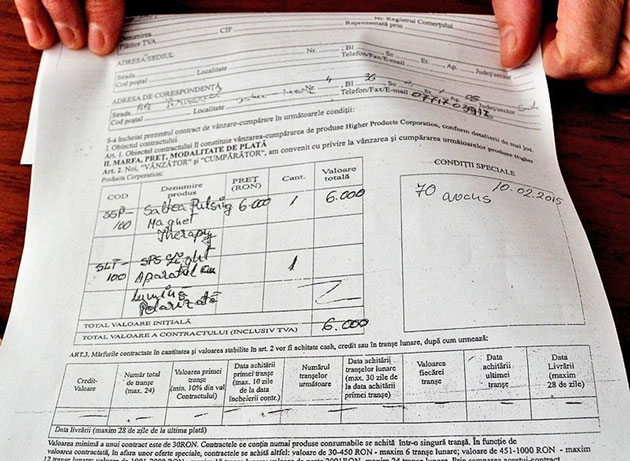 Denumirea
Plătitor TVA CIF Nr. Registrul Comerțului
Reprezentată prin
ADRESA/SEDIUL
Strada Nr. Bl. Sc. Et. Ap. Județ/sector
Cod poștal Localitate Telefon/Fax/E-mail
ADRESA DE CORESPONDENȚĂ
Strada 4 Bl. 35 Sc. Et. Ap. Județ/sector
Cod poștal Localitate Telefon/Fax/E-mail
S-a încheiat prezentul contract de vânzare-cumpărare în următoarele condiții:
I. Obiectul contractului
Art. 1. Obiectul contractului îl constituie vânzarea-cumpărarea de produse Higher Products Corporation, conform detalierii de mai jos.
II. MARFA, PREȚ, MODALITATE DE PLATĂ
Art. 2. Noi, "VÂNZĂTOR" și "CUMPĂRĂTOR", am convenit cu privire la vânzarea și cumpărarea următoarelor produse Higher
Products Corporation:
CONDIȚII SPECIALE
10.02.2015
70 avans
COD Denumire produs PREȚ (RON) Cant. Valoare totală
SSP-100 Saltea Pulsing Magnet Therapy 6.000 1 6.000
SLT-100 SPS Light Aparatul cu Lumină Polarizată 1
TOTAL VALOARE INIȚIALĂ
TOTAL VALOARE A CONTRACTULUI (INCLUSIV TVA) 6.000
ART.3. Mărfurile contractate în cantitatea și valoarea stabilite în art. 2 vor fi achitate cash, credit sau în tranșe lunare, după cum urmează:
Credit-Valoare
Număr total de tranșe (max. 24)
Valoarea primei tranșe (min. 10% din val. Contractului)
Data achitării primei tranșe (max. 10 zile de la data încheierii contr.)
Numărul tranșelor următoare
Data achitării tranșelor lunare (max. 30 zile de la data achitării primei tranșe)
Valoarea fiecărei tranșe
Data achitării ultimei tranșe
Data Livrării (maxim 28 de zile)
Data livrării (maxim 28 de zile de la ultima plată)
Valoarea minimă a unui contract este de 30RON. Contractele ce conțin numai produse consumabile se achită într-o singură tranșă. În funcție de
valoarea contractată, în afara unor oferte speciale, contractele se achită altfel: valoare de 30-450 RON - maxim 6 tranșe lunare; valoare de 451-1000 RON - maxim